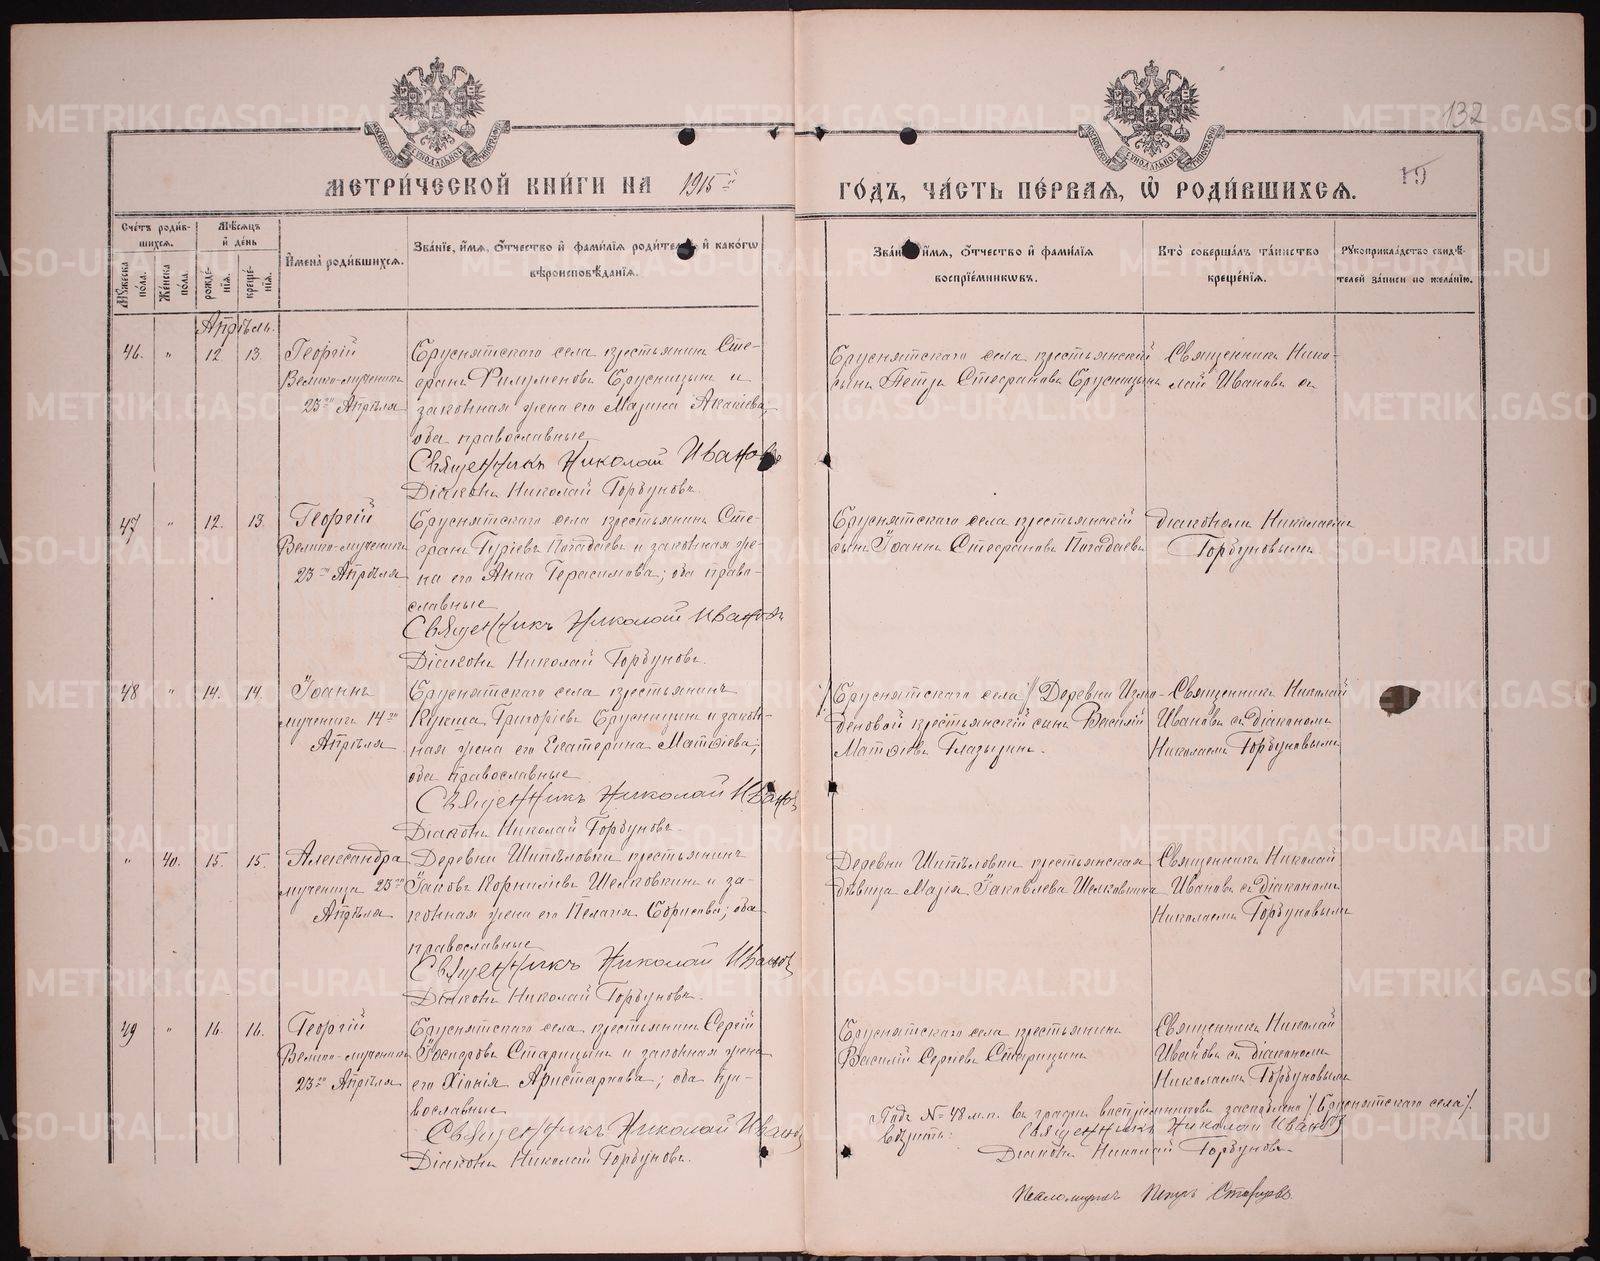 132
19
МЕТРИЧЕСКОЙ КНИГИ НА 1915й
ГОДЪ, ЧАСТЬ ПЕРВАЯ, Ѽ РОДИВШИХСЯ.
Счетъ родившихся.
Мужеска пола.
Женска пола.
Мѣсяцъ и день
рожденія.
крещенія.
Имена родившихся.
Званіе, имя, отчество и фамилія родителей и какогω
вѣроисповѣданія.
Званіе, имя, отчество и фамилія
воспріемникωвъ.
Кто совершалъ таинство
крещенія.
Рукоприкладство свидѣтелей записи по желанію.
Апрѣль.
46. " 12 13.
Георгій
Велико-мученика
23го Апрѣля
Бруснятскаго села крестьянинъ Сте-
фанъ Филуменовъ Брусницынъ и
законная жена его Марина Акакіева,
оба православные
Священникъ Николай Ивановъ
Діаконъ Николай Горбуновъ.
Бруснятскаго села крестьянскій
сынъ Петръ Стефановъ Брусницынъ
Священникъ Нико-
лай Ивановъ съ
47 " 12. 13.
Георгій
Велико-мученика
23го Апрѣля
Бруснятскаго села крестьянинъ Сте-
фанъ Гуріевъ Погадаевъ и законная же-
на его Анна Герасимова; оба право-
славные
Священникъ Николай Ивановъ
Діаконъ Николай Горбуновъ.
Бруснятскаго села крестьянскій
сынъ Іоаннъ Стефановъ Погадаевъ
діакономъ Николаемъ
Горбуновымъ
48 " 14. 14.
Іоаннъ
мученика 14го
Апрѣля
Бруснятскаго села крестьянинъ
Кукша Григоріевъ Брусницынъ и закон-
ная жена его Екатерина Матѳіева;
оба православные
Священникъ Николай Ивановъ
Діаконъ Николай Горбуновъ.
Бруснятскаго села Деревни Измо-
деновой крестьянскій сынъ Василій
Матѳіевъ Глазыринъ.
Священникъ Николай
Ивановъ съ діакономъ
Николаемъ Горбуновымъ
" 40. 15. 15.
Александра
мученица 23го
Апрѣля
Деревни Шипѣловки крестьянинъ
Іаковъ Корниліевъ Шелковкинъ и за-
конная жена его Пелагія Борисова; оба
православные
Священникъ Николай Ивановъ
Діаконъ Николай Горбуновъ.
Деревни Шипѣловки крестьянская
дѣвица Марія Іаковлева Шелковкина
Священникъ Николай
Ивановъ съ діакономъ
Николаемъ Горбуновымъ
49 " 16. 16.
Георгій
Велико-мученика
23го Апрѣля
Бруснятскаго села крестьянинъ Сергій
Іосифовъ Старицынъ и законная жена
его Хіонія Аристархова; оба пра-
вославные
Священникъ Николай Ивановъ
Діаконъ Николай Горбуновъ.
Бруснятскаго села крестьянинъ
Василій Сергіевъ Старицынъ
Священникъ Николай
Ивановъ съ діакономъ
Николаемъ Горбуновымъ
Подъ №-48 м.п. въ графѣ воспріемниковъ Бруснятскаго села
вѣрить: Священникъ Николай Ивановъ
Діаконъ Николай Горбуновъ.
Псаломщикъ Петръ
METRIKI.GASO-URAL.RU